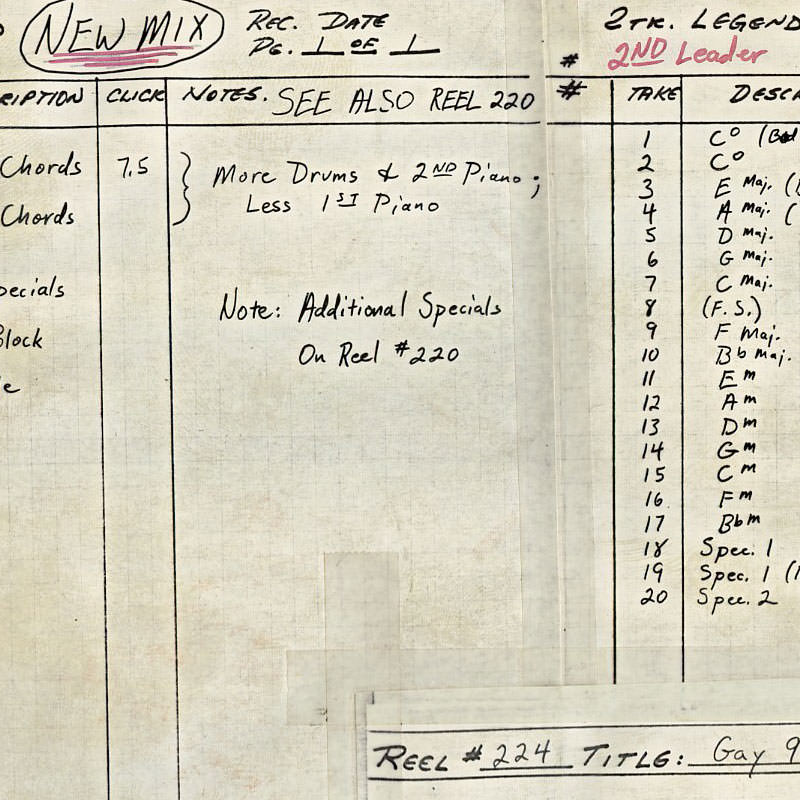 NEW MIX
REC. DATE
PG. 1 OF 1
RIPTION CLICK NOTES. SEE ALSO REEL 220
Chords 7.5 More Drums & 2ND Piano;
Less 1ST Piano
Chords
pecials
Note: Additional Specials
On Reel #220
Block
e
2TK. LEGEND
# 2ND Leader
# TAKE DESCR
1 Co
2 Co
3 E Maj. (
4 A Maj. (
5 D Maj.
6 G Maj.
7 C Maj.
8 (F. S.)
9 F Maj.
10 Bb Maj.
11 Em
12 Am
13 Dm
14 Gm
15 Cm
16 Fm
17 Bbm
18 Spec. 1
19 Spec. 1 (
20 Spec. 2
REEL # 224 TITLE: Gay 9